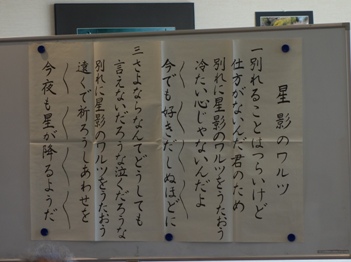 星影のワルツ
一別れることはつらいけど
仕方がないんだ君のため
別れに星影のワルツをうたおう
冷たい心じゃないんだよ
〱〱〱〱
今でも好きだしぬほどに
三さよならなんてどうしても
言えないだろうな泣くだろうな
別れに星影のワルツをうたおう
遠くで祈ろうしあわせを
〱〱〱〱
今夜も星が降るようだ